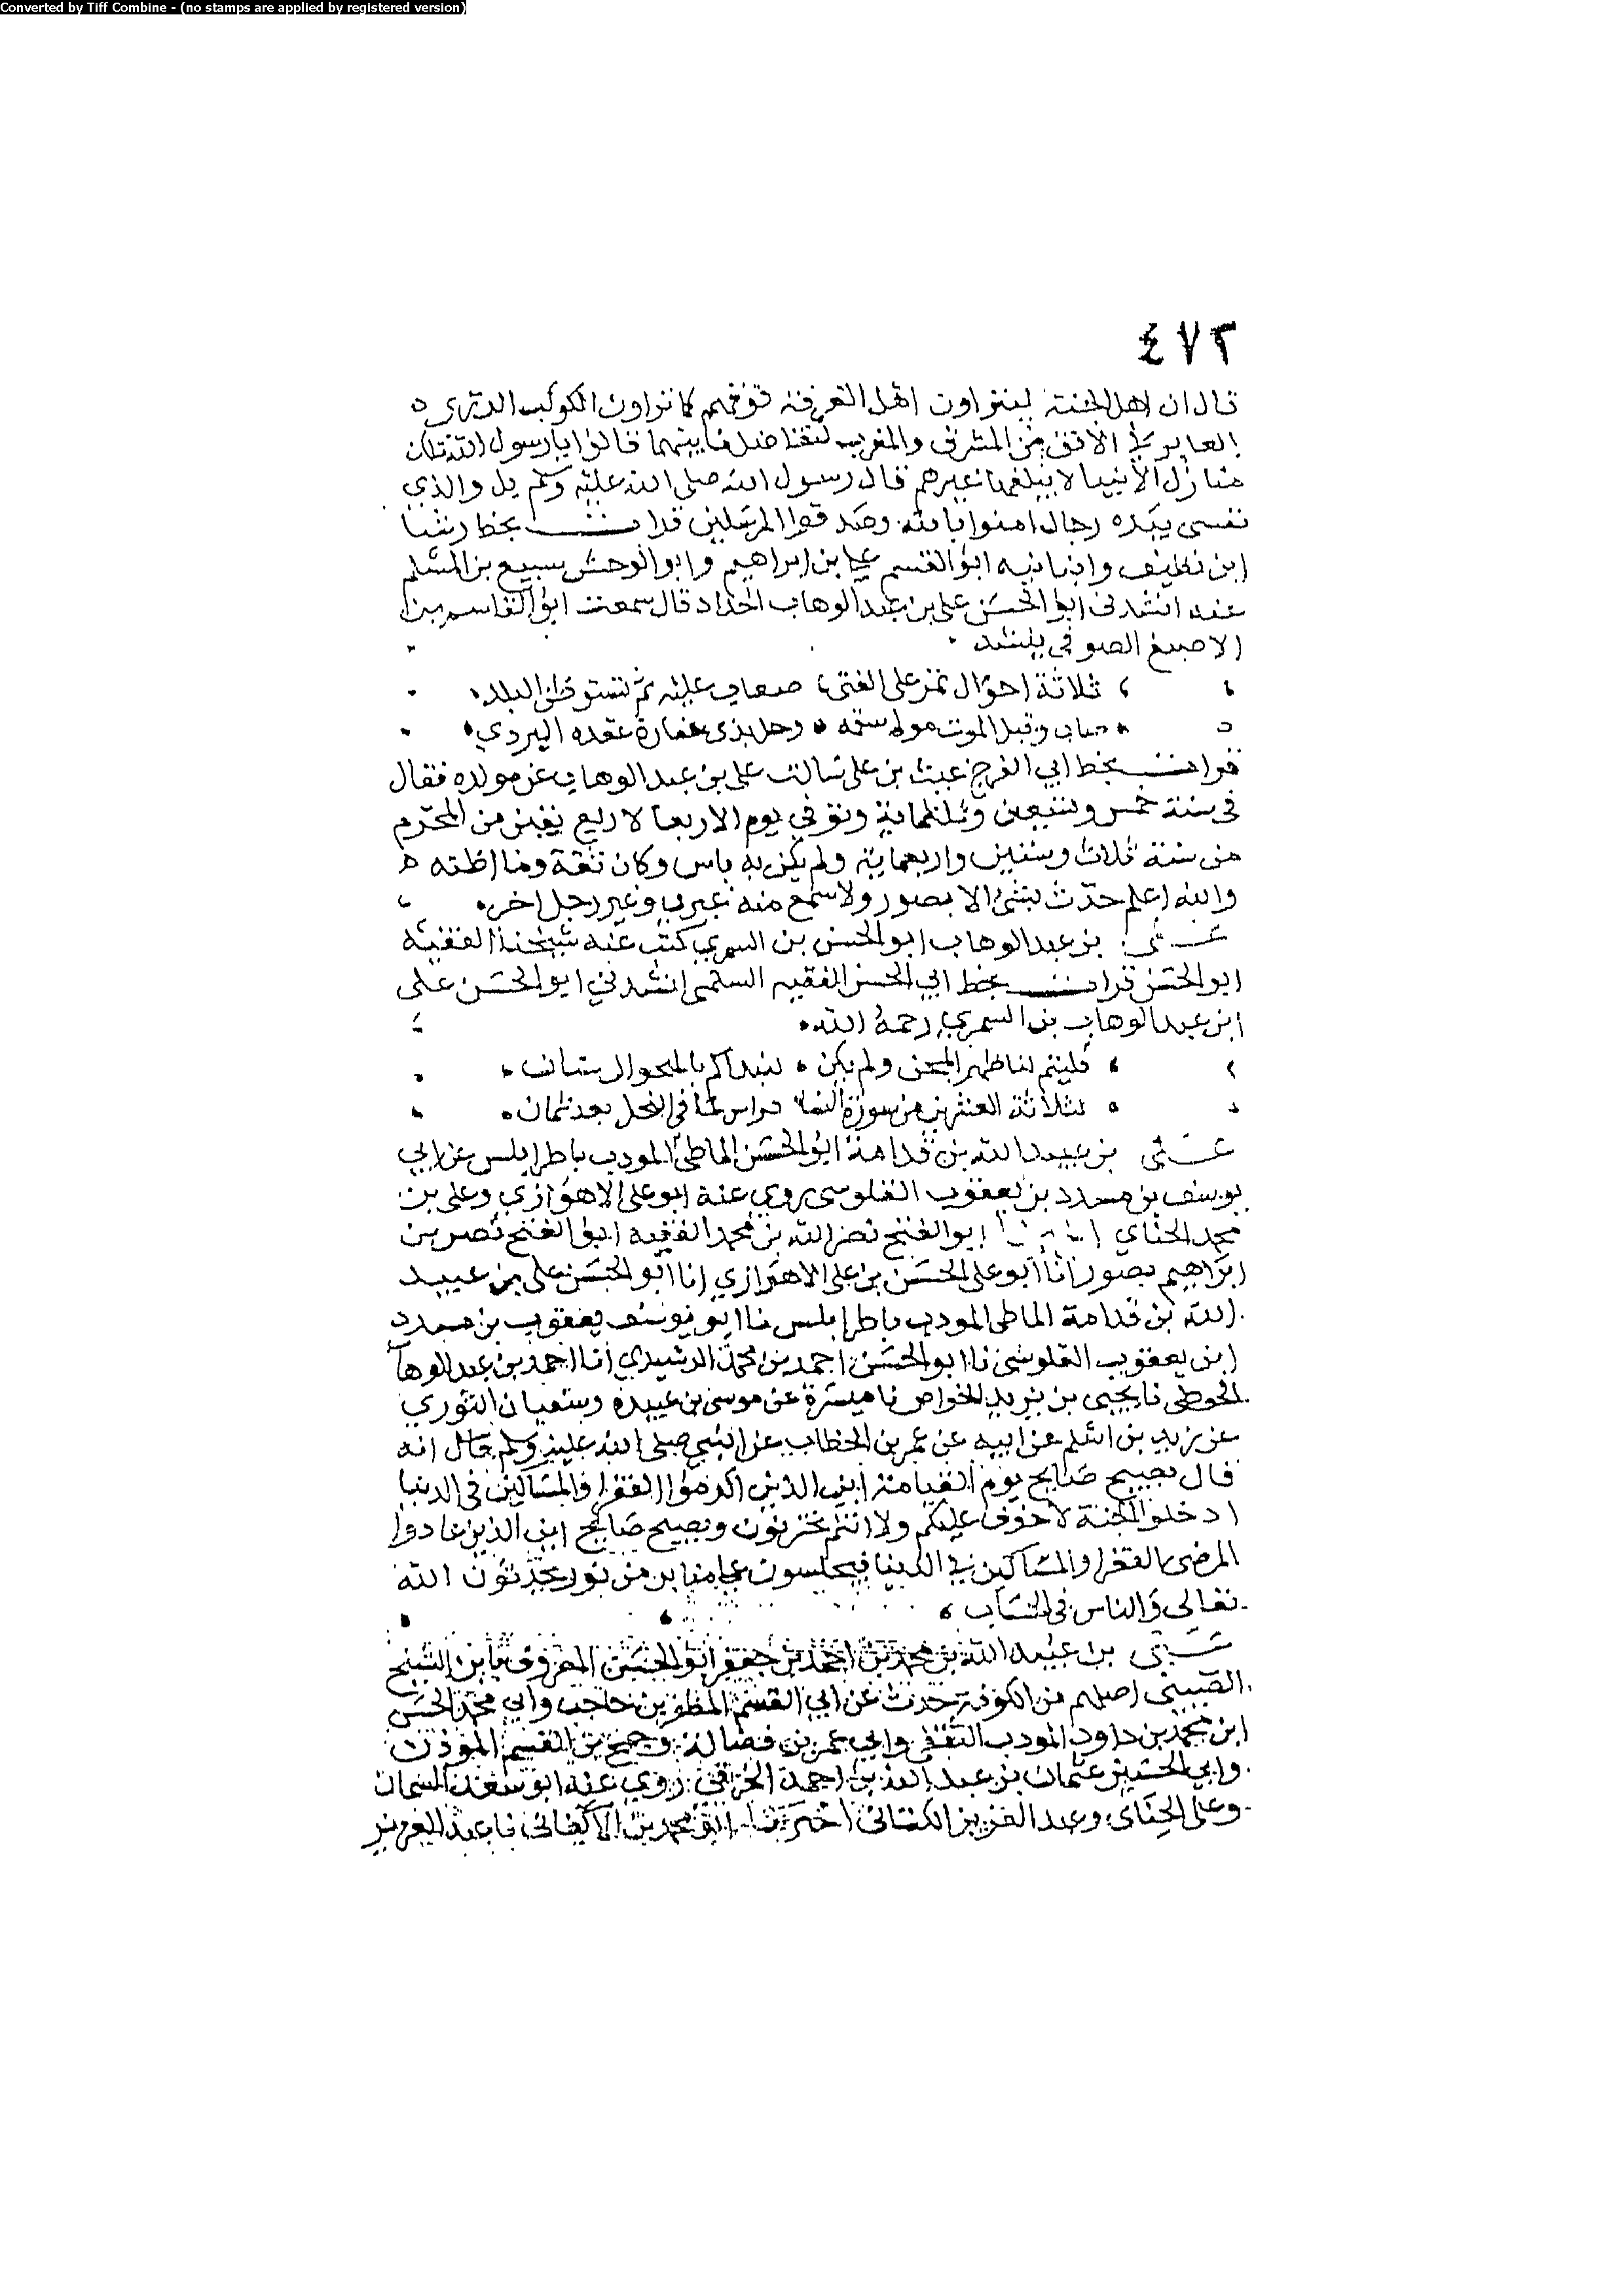 Converted by Tiff Combine - (no stamps are applied by registered version)
٤٧٢
قال ان اهل الجنة ليتراون اهل الغرفة فوقهم كما تراون الكوكب الدري
الغابر في الافق من المشرق والمغرب لتفاضل ما بينهما قالوا يا رسول الله تلك
منازل الانبيا لا يبلغها غيرهم قال رسول الله صلى الله عليه وسلم بل والذي
نفسي بيده رجال امنوا بالله وصدقوا المرسلين قرات بخط رشا
ابن نظيف وانبانيه ابو القسم علي بن ابراهيم وابو الوحش سبيع بن المسلم
عنه انشدني ابو الحسن علي بن عبد الوهاب الحداد قال سمعت ابو القاسم بن
الاصبغ الصوفي ينشد
ثلاثة احوال تمر على الفتى
وقبل الموت
قرات بخط ابي الفرج غيث بن علي سالت علي بن عبد الوهاب عن مولده فقال
في سنة خمس وسبعين وثلثماية وتوفي يوم الاربعا لاربع بقين من المحرم
من سنة ثلاث وستين واربعماية ولم يكن به باس وكان ثقة وما اظنه
والله اعلم حدث بشي الا بصور ولا سمع منه غيري وغير رجل اخر
علي بن عبد الوهاب ابو الحسن بن السمري كتب عنه شيخنا الفقيه
ابو الحسن قرات بخط ابي الحسن الفقيه السلمي انشدني ابو الحسن علي
ابن عبد الوهاب بن السمري رحمه الله
فليتم لنا ظهر المجن ولم يكن
لثلاثة العشرين من سورة في النحل بعد ثمان
علي بن عبيد الله بن قدامة ابو الحسن الملطي المودب باطرابلس عن ابي
يوسف بن مسدد بن يعقوب القلوسي روى عنه ابو علي الاهوازي وعلي بن
محمد الحناي ابو الفتح نصر الله بن محمد الفقيه ابو الفتح نصر بن
ابراهيم بصور انا ابو علي الحسن بن علي الاهوازي انا ابو الحسن علي بن عبيد
الله بن قدامة الملطي المودب باطرابلس نا ابو يوسف يعقوب بن مسدد
ابن يعقوب القلوسي نا ابو الحسن احمد بن محمد الرشيدي انا احمد بن عبد الوهاب
الحوطي نا يحيى بن يزيد الخواص نا ميسرة عن موسى بن عبيدة وسفيان الثوري
عن زيد بن اسلم عن ابيه عن عمر بن الخطاب عن النبي صلى الله عليه وسلم قال انه
قال يصيح صايح يوم القيامة اين الذين اكرموا الفقرا والمساكين في الدنيا
ادخلوا الجنة لا خوف عليكم ولا انتم تحزنون ويصيح صايح اين الذين عادوا
المرضى الفقرا والمساكين في الدنيا فيجلسون على منابر من نور يحدثون الله
تعالى والناس في الحساب
علي بن عبيد الله بن محمد بن احمد بن جعفر ابو الحسن المعروف بابن الشيخ
اصلهم من الكوفة حدث عن ابي القسم المظفر بن حاجب وابي محمد الحسن
ابن محمد بن داود المودب الثقفي وابي عمر بن فضالة وجمح بن القسم الموذن
وابي الحسين عثمان بن عبد الله بن احمد الخرقي روى عنه ابو سعد السمان
وعلي الحناي وعبد العزيز الكتاني اخبرنا ابو محمد بن الاكفاني نا عبد العزيز